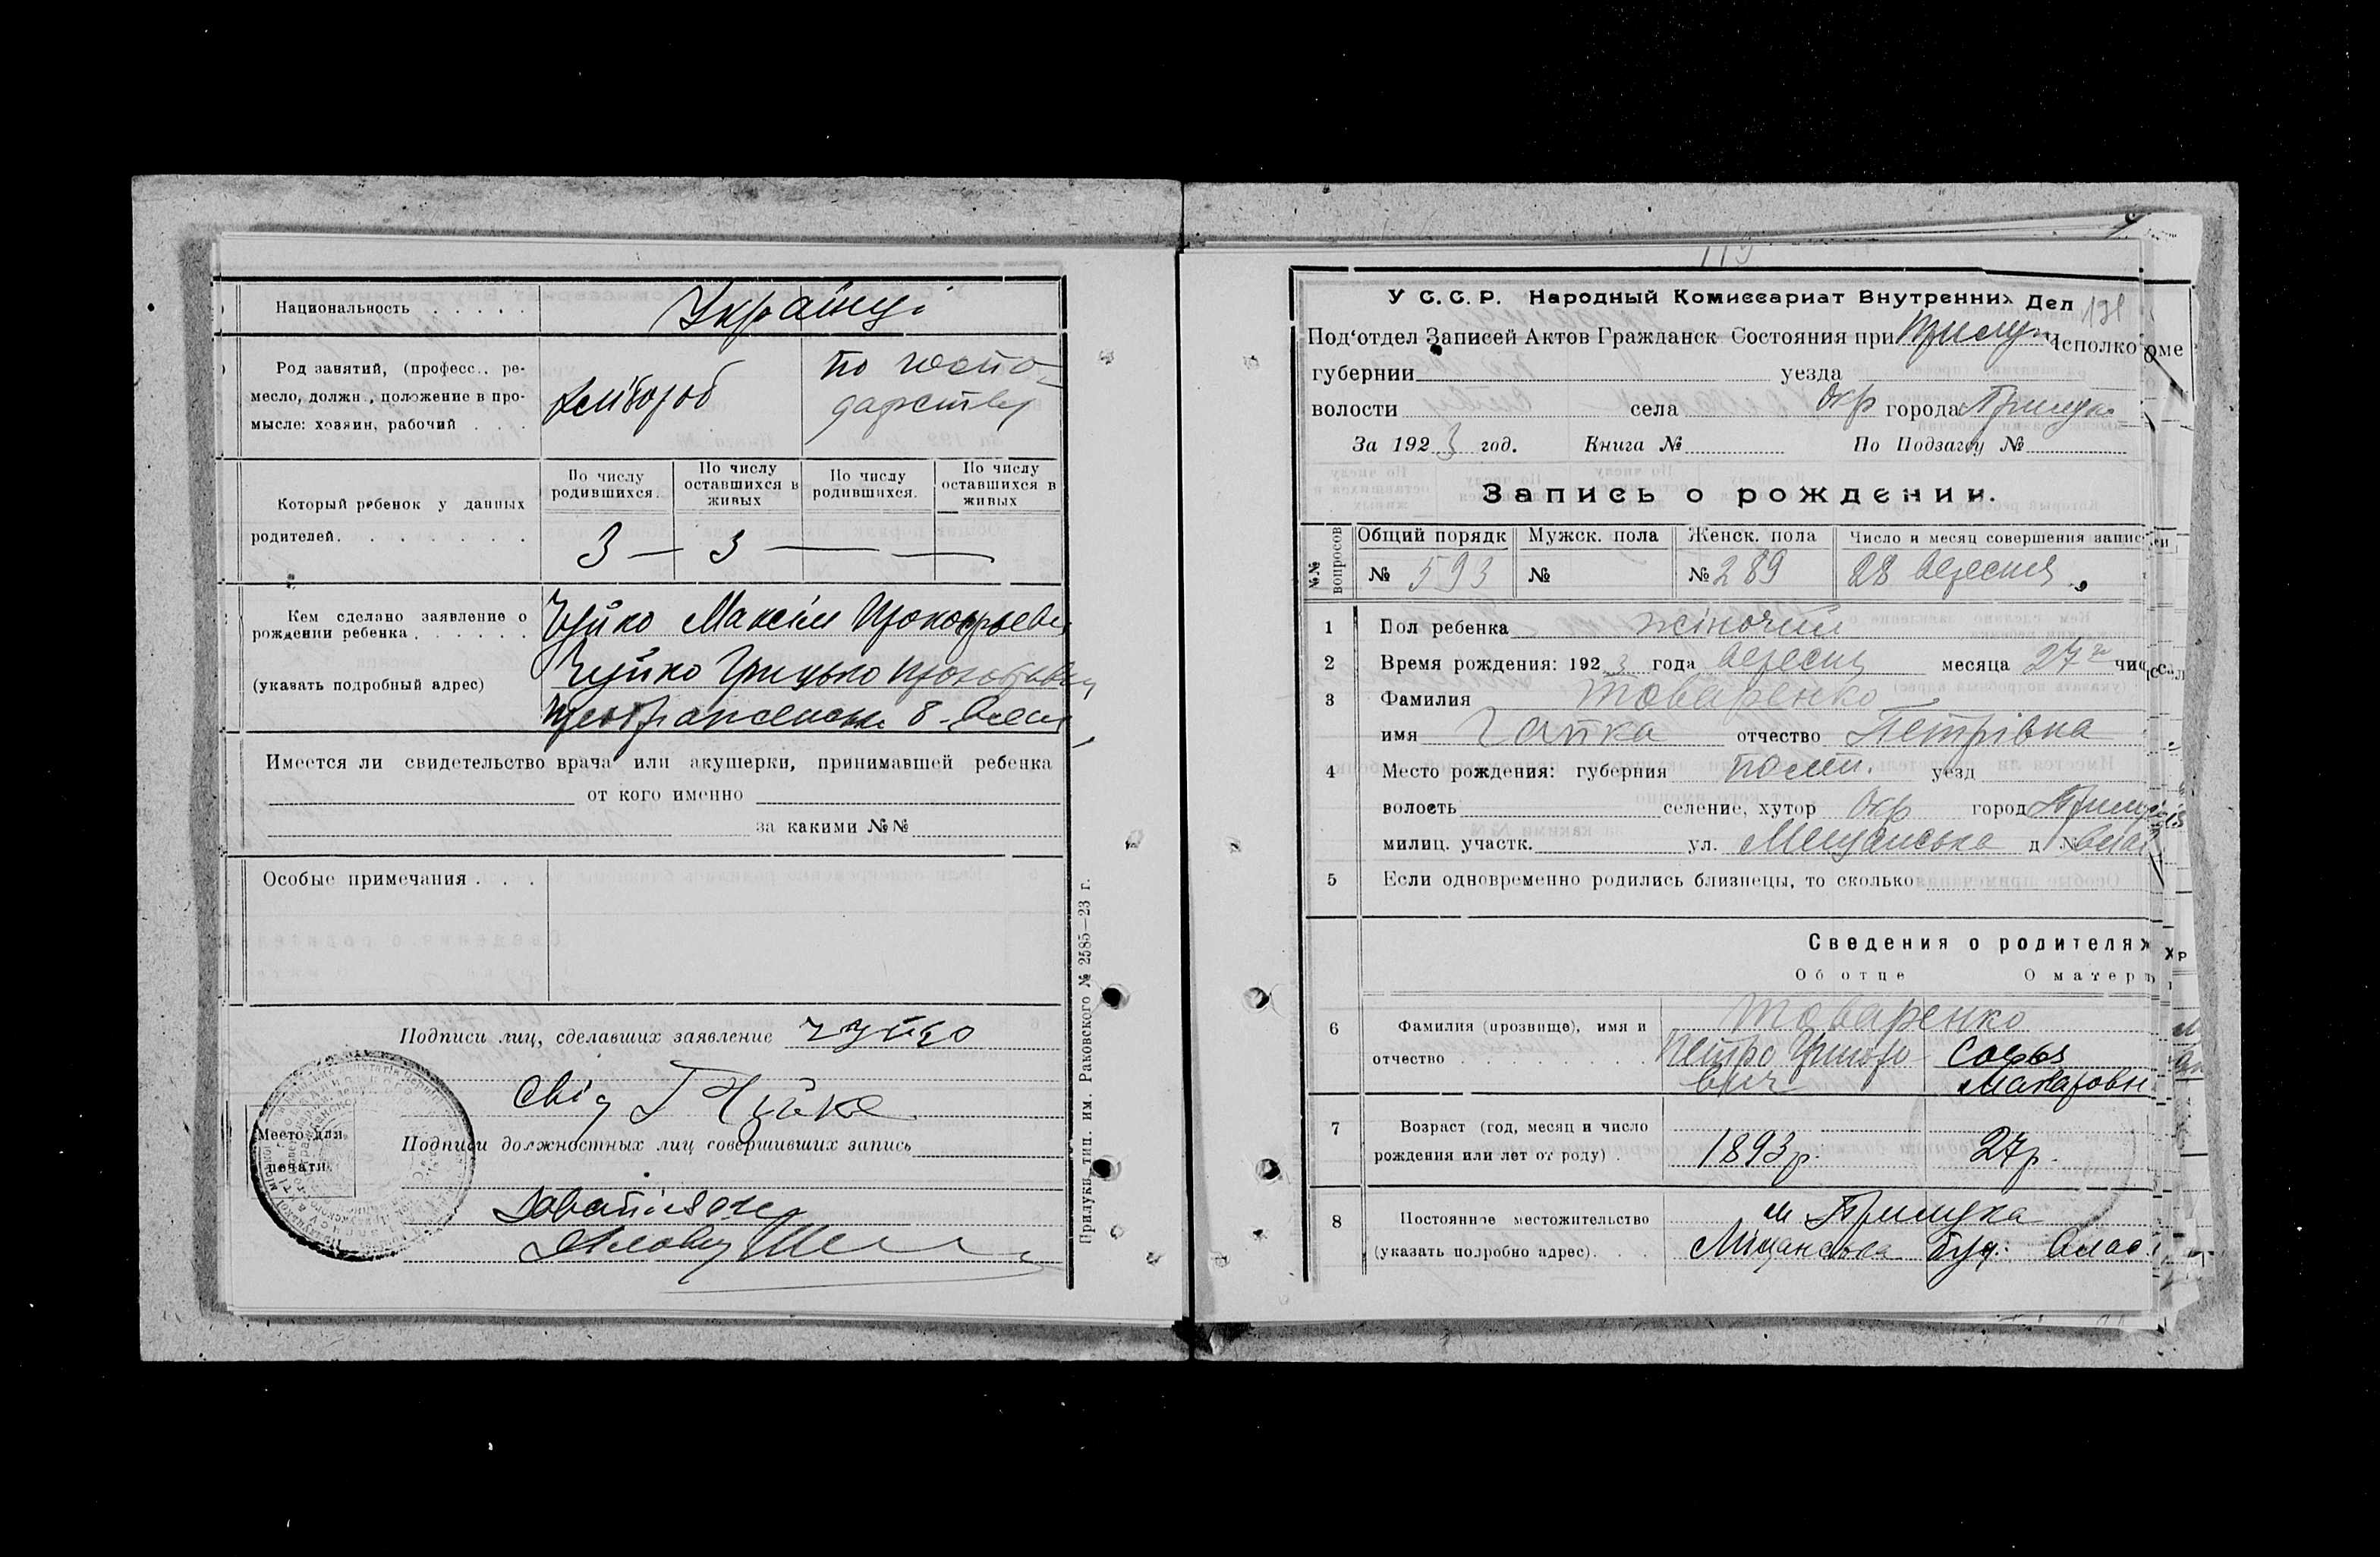 Национальность . . . . . Українці
Род занятий, (професс., ре-
месло, должн., положение в про-
мысле: хозяин, рабочий . . .
хлібороб
по госпо-
дарству
Который ребенок у данных
родителей. . . . . . .
По числу родившихся.
По числу оставшихся в живых
По числу родившихся.
По числу оставшихся в живых
3 — 3 — —
Кем сделано заявление о
рождении ребенка . . . . . .
(указать подробный адрес)
Чуйко Максім
Чуйко Грицько
8
Имеется ли свидетельство врача или акушерки, принимавшей ребенка
от кого именно
за какими №№
Особые примечания . . .
Подписи лиц, сделавших заявление Чуйко
Свід Г Чуйко
Подписи должностных лиц совершивших запись
Место для
печати
Прилуки, тип. им. Раковского № 2585—23 г.
У С. С. Р. Народный Комиссариат Внутренних Дел
Под'отдел Записей Актов Гражданск Состояния при Прилуц. Исполкоме
губернии уезда
волости села Окр города Прилука
За 1923 год. Книга № По Подзагсу №
Запись о рождении.
№№ вопросов
Общий порядк
Мужск. пола
Женск. пола
Число и месяц совершения записи
№ 593 № № 289 28 вересня
1 Пол ребенка жіночий
2 Время рождения: 1923 года вересня месяца 27го числ
3 Фамилия Товаренко
имя Галка отчество Петрівна
4 Место рождения: губерния Полт. уезд
волость селение, хутор Окр город Прилуці
милиц. участк. ул. Мещанська д №
5 Если одновременно родились близнецы, то сколько
Сведения о родителях
Об отце О матери
6 Фамилия (прозвище), имя и
отчество . . . . . . . .
Товаренко
Петро Григоро
вич
Софья
Макаровн
7 Возраст (год, месяц и число
рождения или лет от роду) .
1893 р. 27 р.
8 Постоянное местожительство
(указать подробно адрес). . .
м Прилука
Міщанська буд: влас.